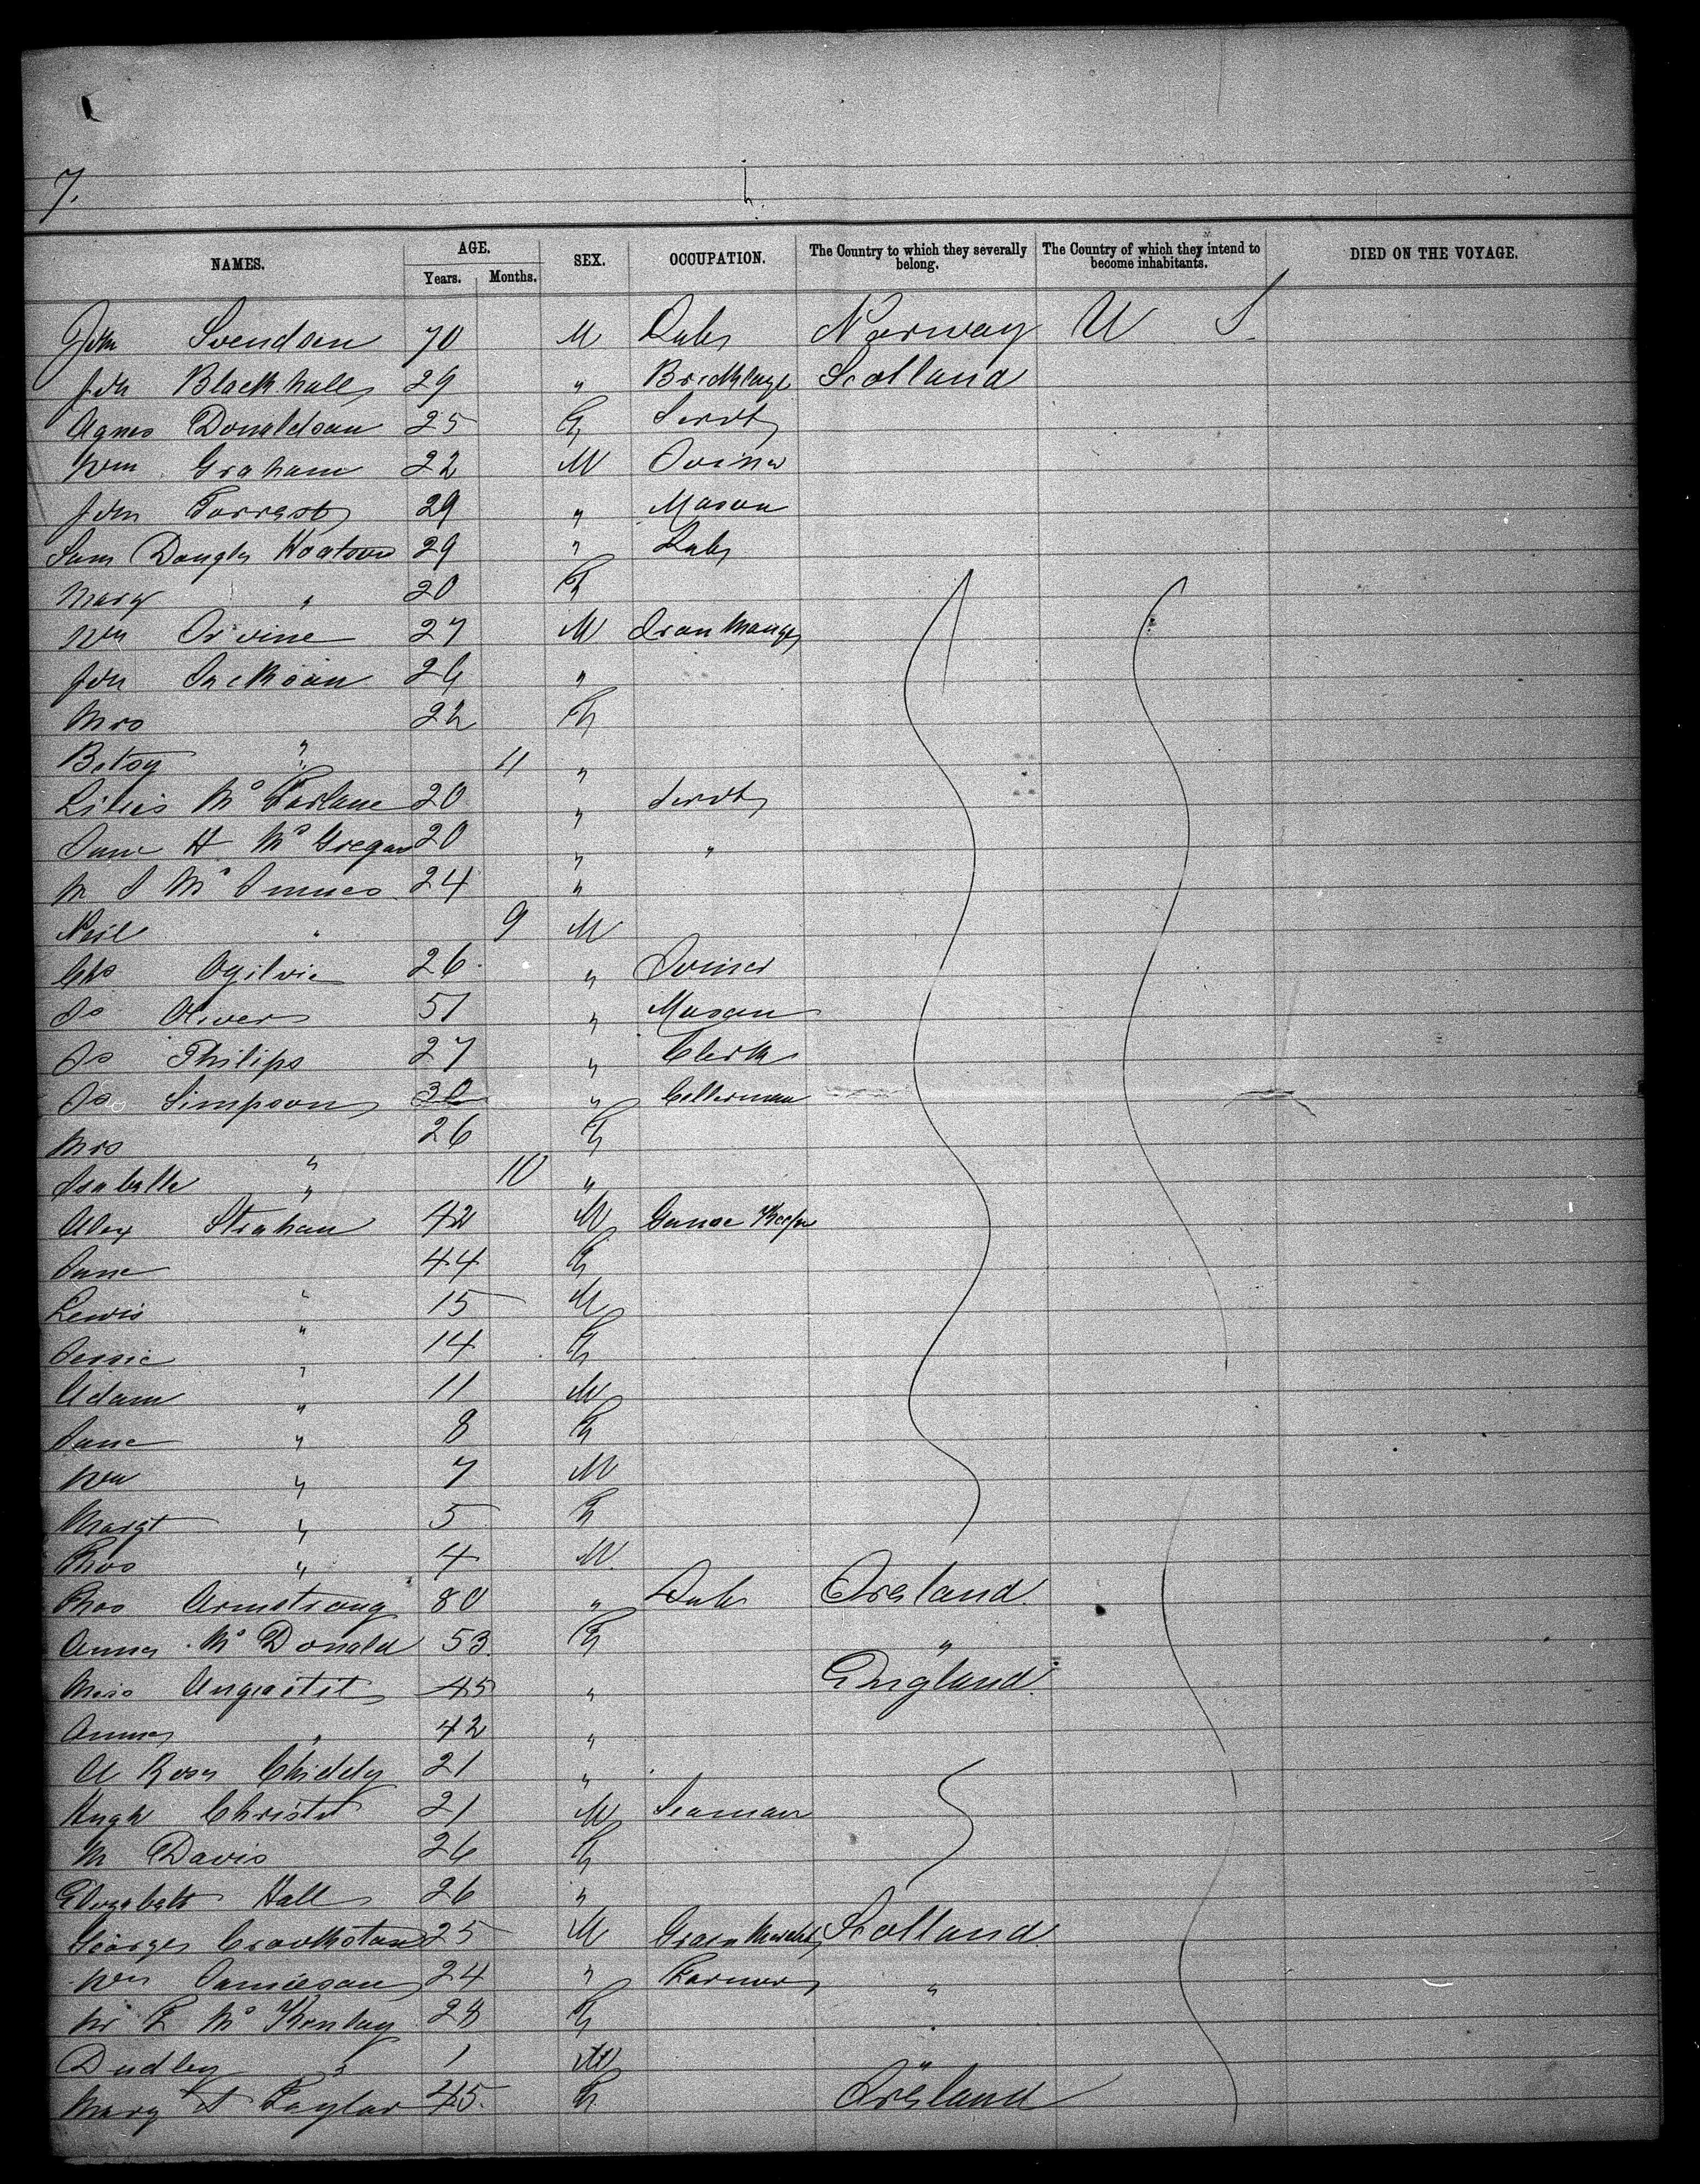 7.
NAMES. AGE. Years. Months. SEX. OCCUPATION. The Country to which they severally belong. The Country of which they intend to become inhabitants. DIED ON THE VOYAGE.
Jno Svendsen 70 M Labr Norway U S
Jno Blackhall 29 " Bricklayr Scotland
Agnes Donaldson 25 F Servt
Wm Graham 22 M Joiner
Jno Forrest 29 " Mason
Sam Dougls 29 " Labr
Mary " 20 F
Wm Irvine 27 M Iron Mangr
Jno Jackson 24 "
Mrs 22 F
Betsy " 11 "
Lilias McFarlane 20 " Servt
Jane H McGregor 20 " "
M J McInnes 24 "
Neil " 9 M
Chs Ogilvie 26 " Joiner
Js Oliver 51 " Mason
Js Philips 27 " Clerk
Js Simpson 30 " Cellerman
Mrs " 26 F
Isabella " 10 "
Alex Strahan 42 M Game Keepr
Jane " 44 F
Lewis " 15 M
Jessie " 14 F
Adam " 11 M
Jane " 8 F
Wm " 7 M
Margt " 5 F
Thos " 4 M
Thos Armstrong 80 " Labr Ireland
Anny McDonald 53 F "
Miss 45 " England
Anny " 42 "
A Rosy Chiddy 21 "
Hugh Christie 21 M Seaman
M Davis 26 F
Elizabeth Hall 26 "
George Crookston 25 M Grain Mercht Scotland
Wm Jamieson 24 " Farmer "
McKenlay 28 F "
Dudley " 1 M "
Mary A Taylor 45 F Ireland